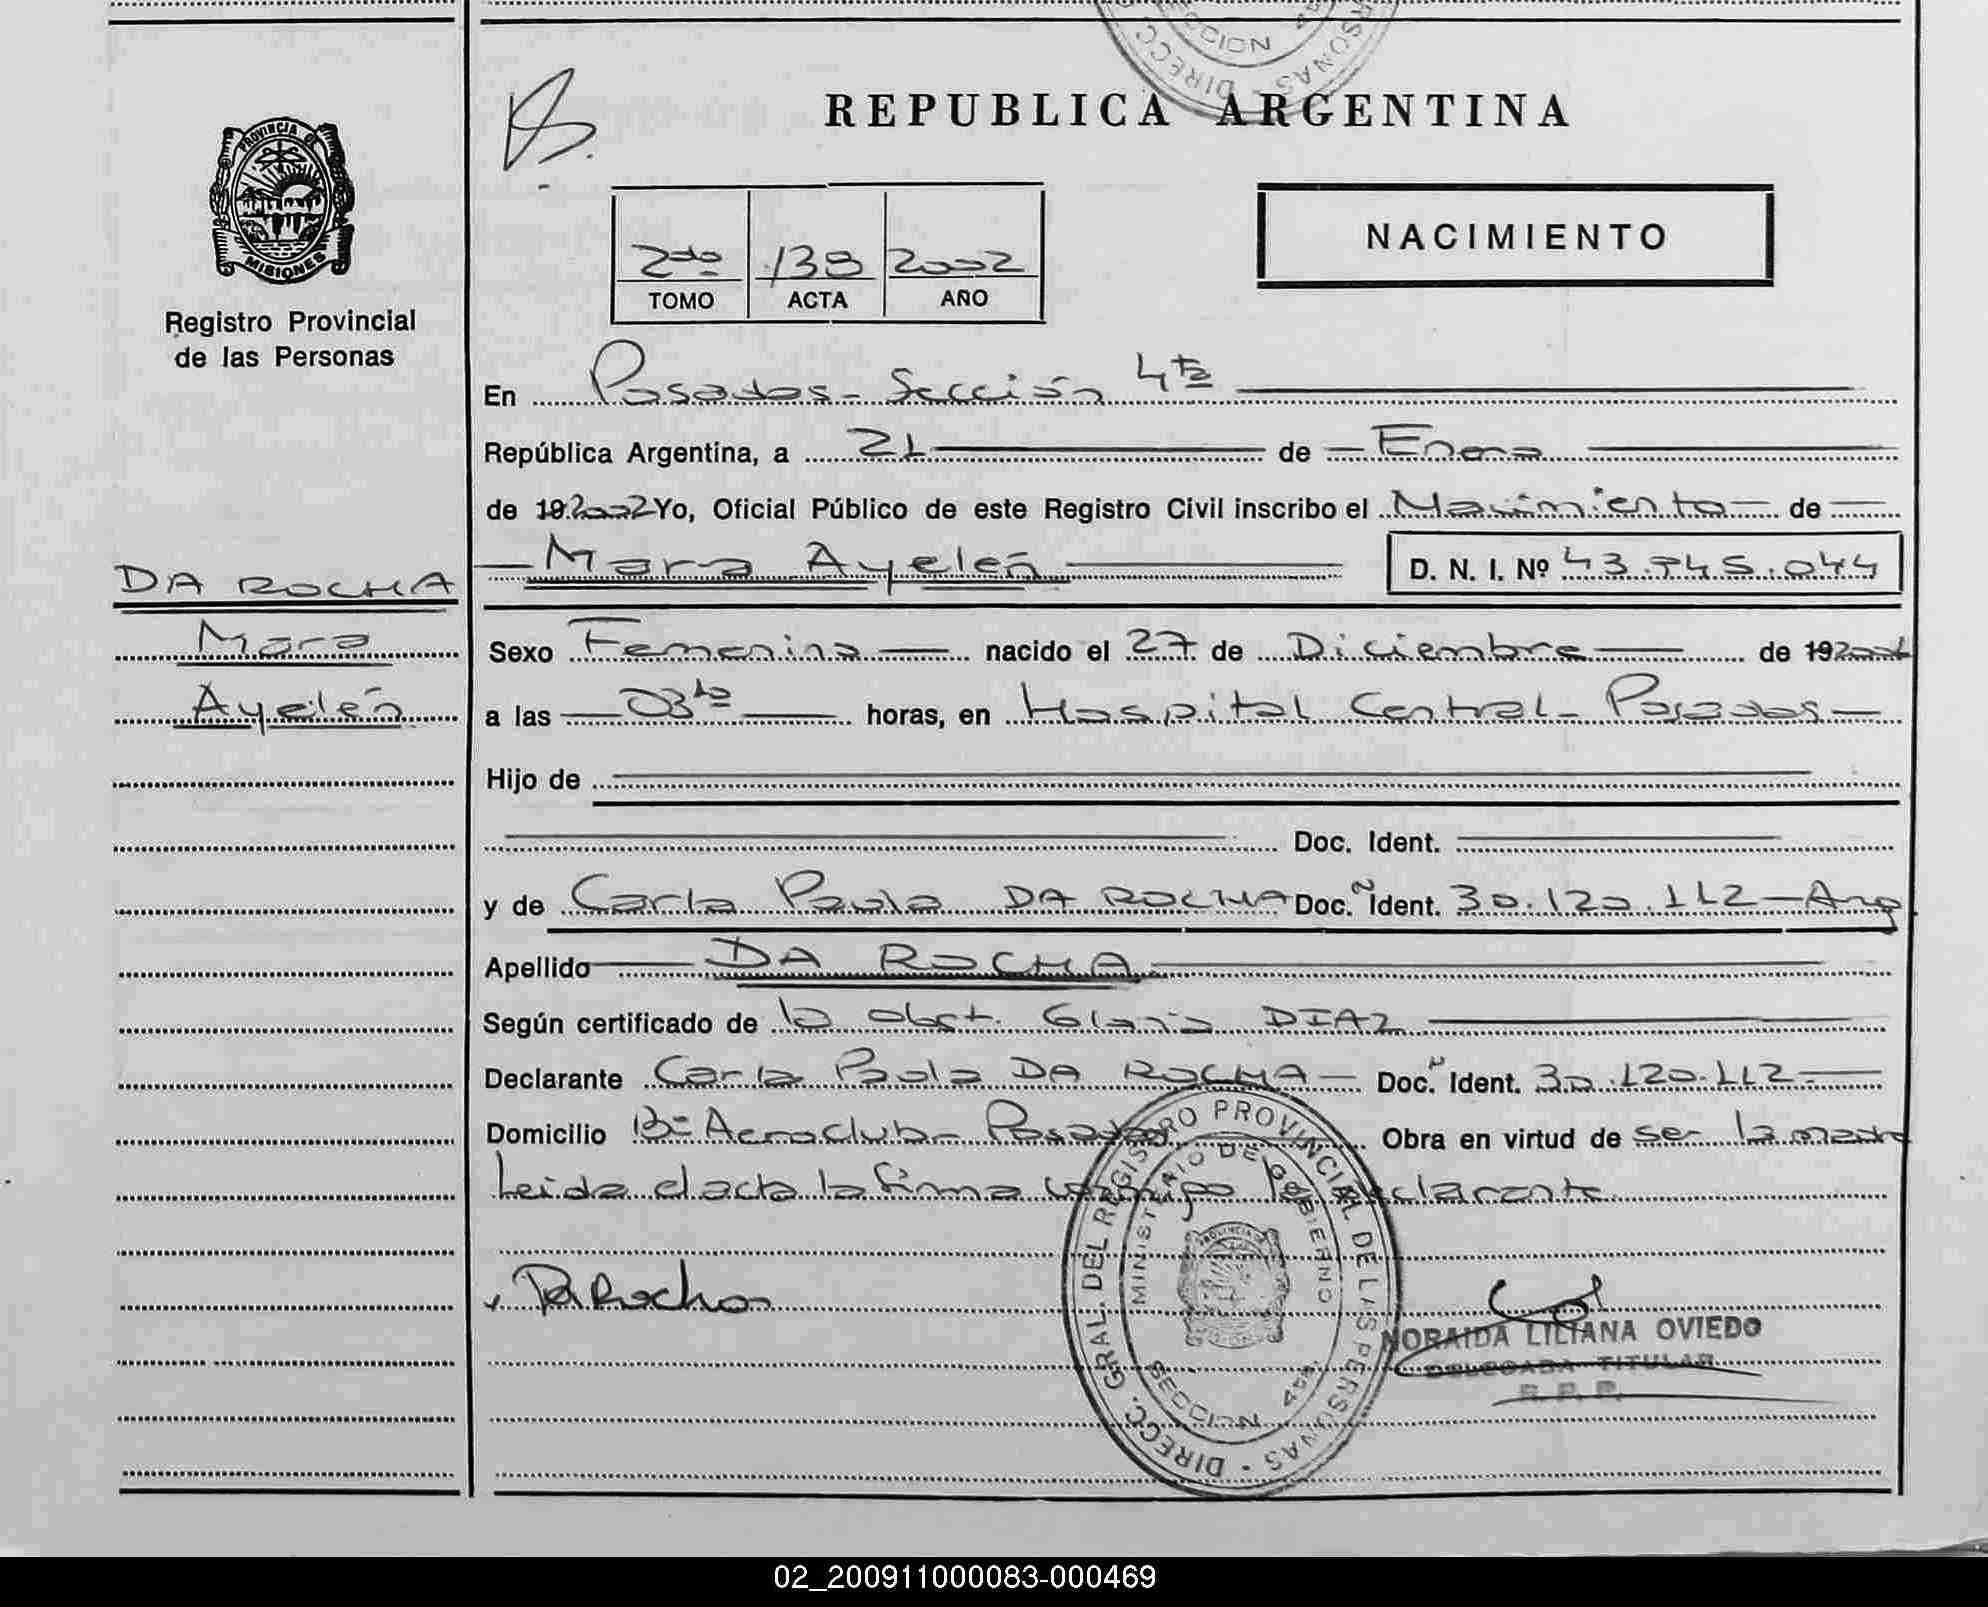 SECCION 4ta
DIRECC. PERSONAS
REPUBLICA ARGENTINA
PROVINCIA DE
MISIONES
NACIMIENTO
2do 139 2002
TOMO ACTA AÑO
Registro Provincial
de las Personas
En Posadas - Sección 4ta
República Argentina, a 21 de Enero
de 19 2002 Yo, Oficial Público de este Registro Civil inscribo el Nacimiento de
Mara Ayelén D. N. I. Nº 43.745.044
DA ROCHA
Mara
Ayelén
Sexo Femenino nacido el 27 de Diciembre de 19 2001
a las 03 horas, en Hospital Central - Posadas
Hijo de
Doc. Ident.
y de Carla Paula DA ROCHA Doc. Ident. 30.120.112 - Arg
Apellido DA ROCHA
Según certificado de la obst. Gloria DIAZ
Declarante Carla Paula DA ROCHA Doc. Ident. 30.120.112
Domicilio Bº Aeroclub - Posadas Obra en virtud de ser la madre
Leida el acta la firma conmigo la declarante
Da Rocha
DIRECC. GRAL. DEL REGISTRO PROVINCIAL DE LAS PERSONAS
MINISTERIO DE GOBIERNO
SECCION 4ta
NORAIDA LILIANA OVIEDO
DELEGADA TITULAR
R. P. P.
02_200911000083-000469